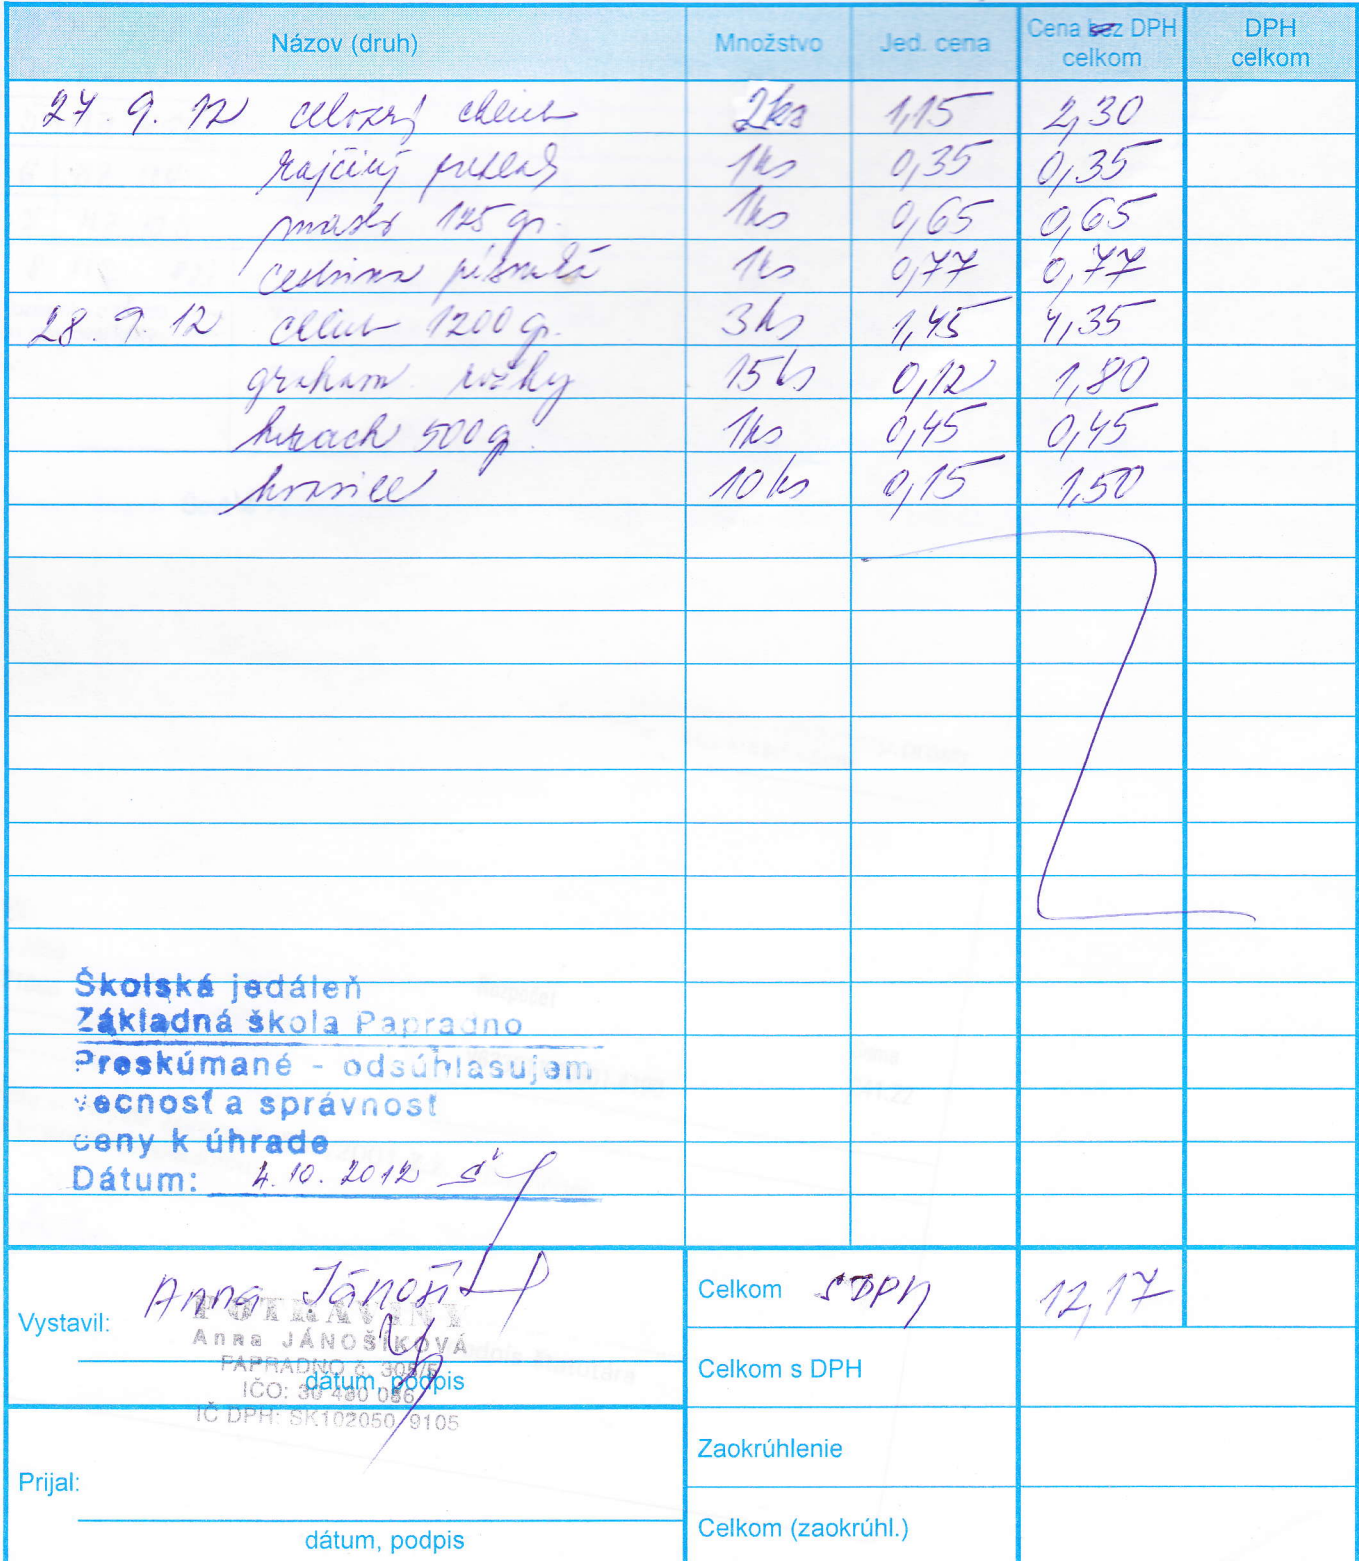 Názov (druh) Množstvo Jed. cena Cena bez DPH celkom DPH celkom
27. 9. 12 celozrný chlieb 2ks 1,15 2,30
rajčiný pretlak 1ks 0,35 0,35
maslo 125 gr. 1ks 0,65 0,65
1ks 0,77 0,77
28. 9. 12 chlieb 1200 gr. 3ks 1,45 4,35
graham rožky 15ks 0,12 1,80
hrach 500 g. 1ks 0,45 0,45
10ks 0,15 1,50
Školská jedáleň
Základná škola Papradno
Preskúmané - odsúhlasujem
vecnosť a správnosť
ceny k úhrade
Dátum: 4. 10. 2012
Vystavil: Anna
POTRAVINY
Anna JÁNOŠÍKOVÁ
PAPRADNO č. 305/6
IČO: 30 480 086
IČ DPH: SK102050 9105
dátum, podpis
Prijal:
dátum, podpis
Celkom s DPH 12,17
Celkom s DPH
Zaokrúhlenie
Celkom (zaokrúhl.)